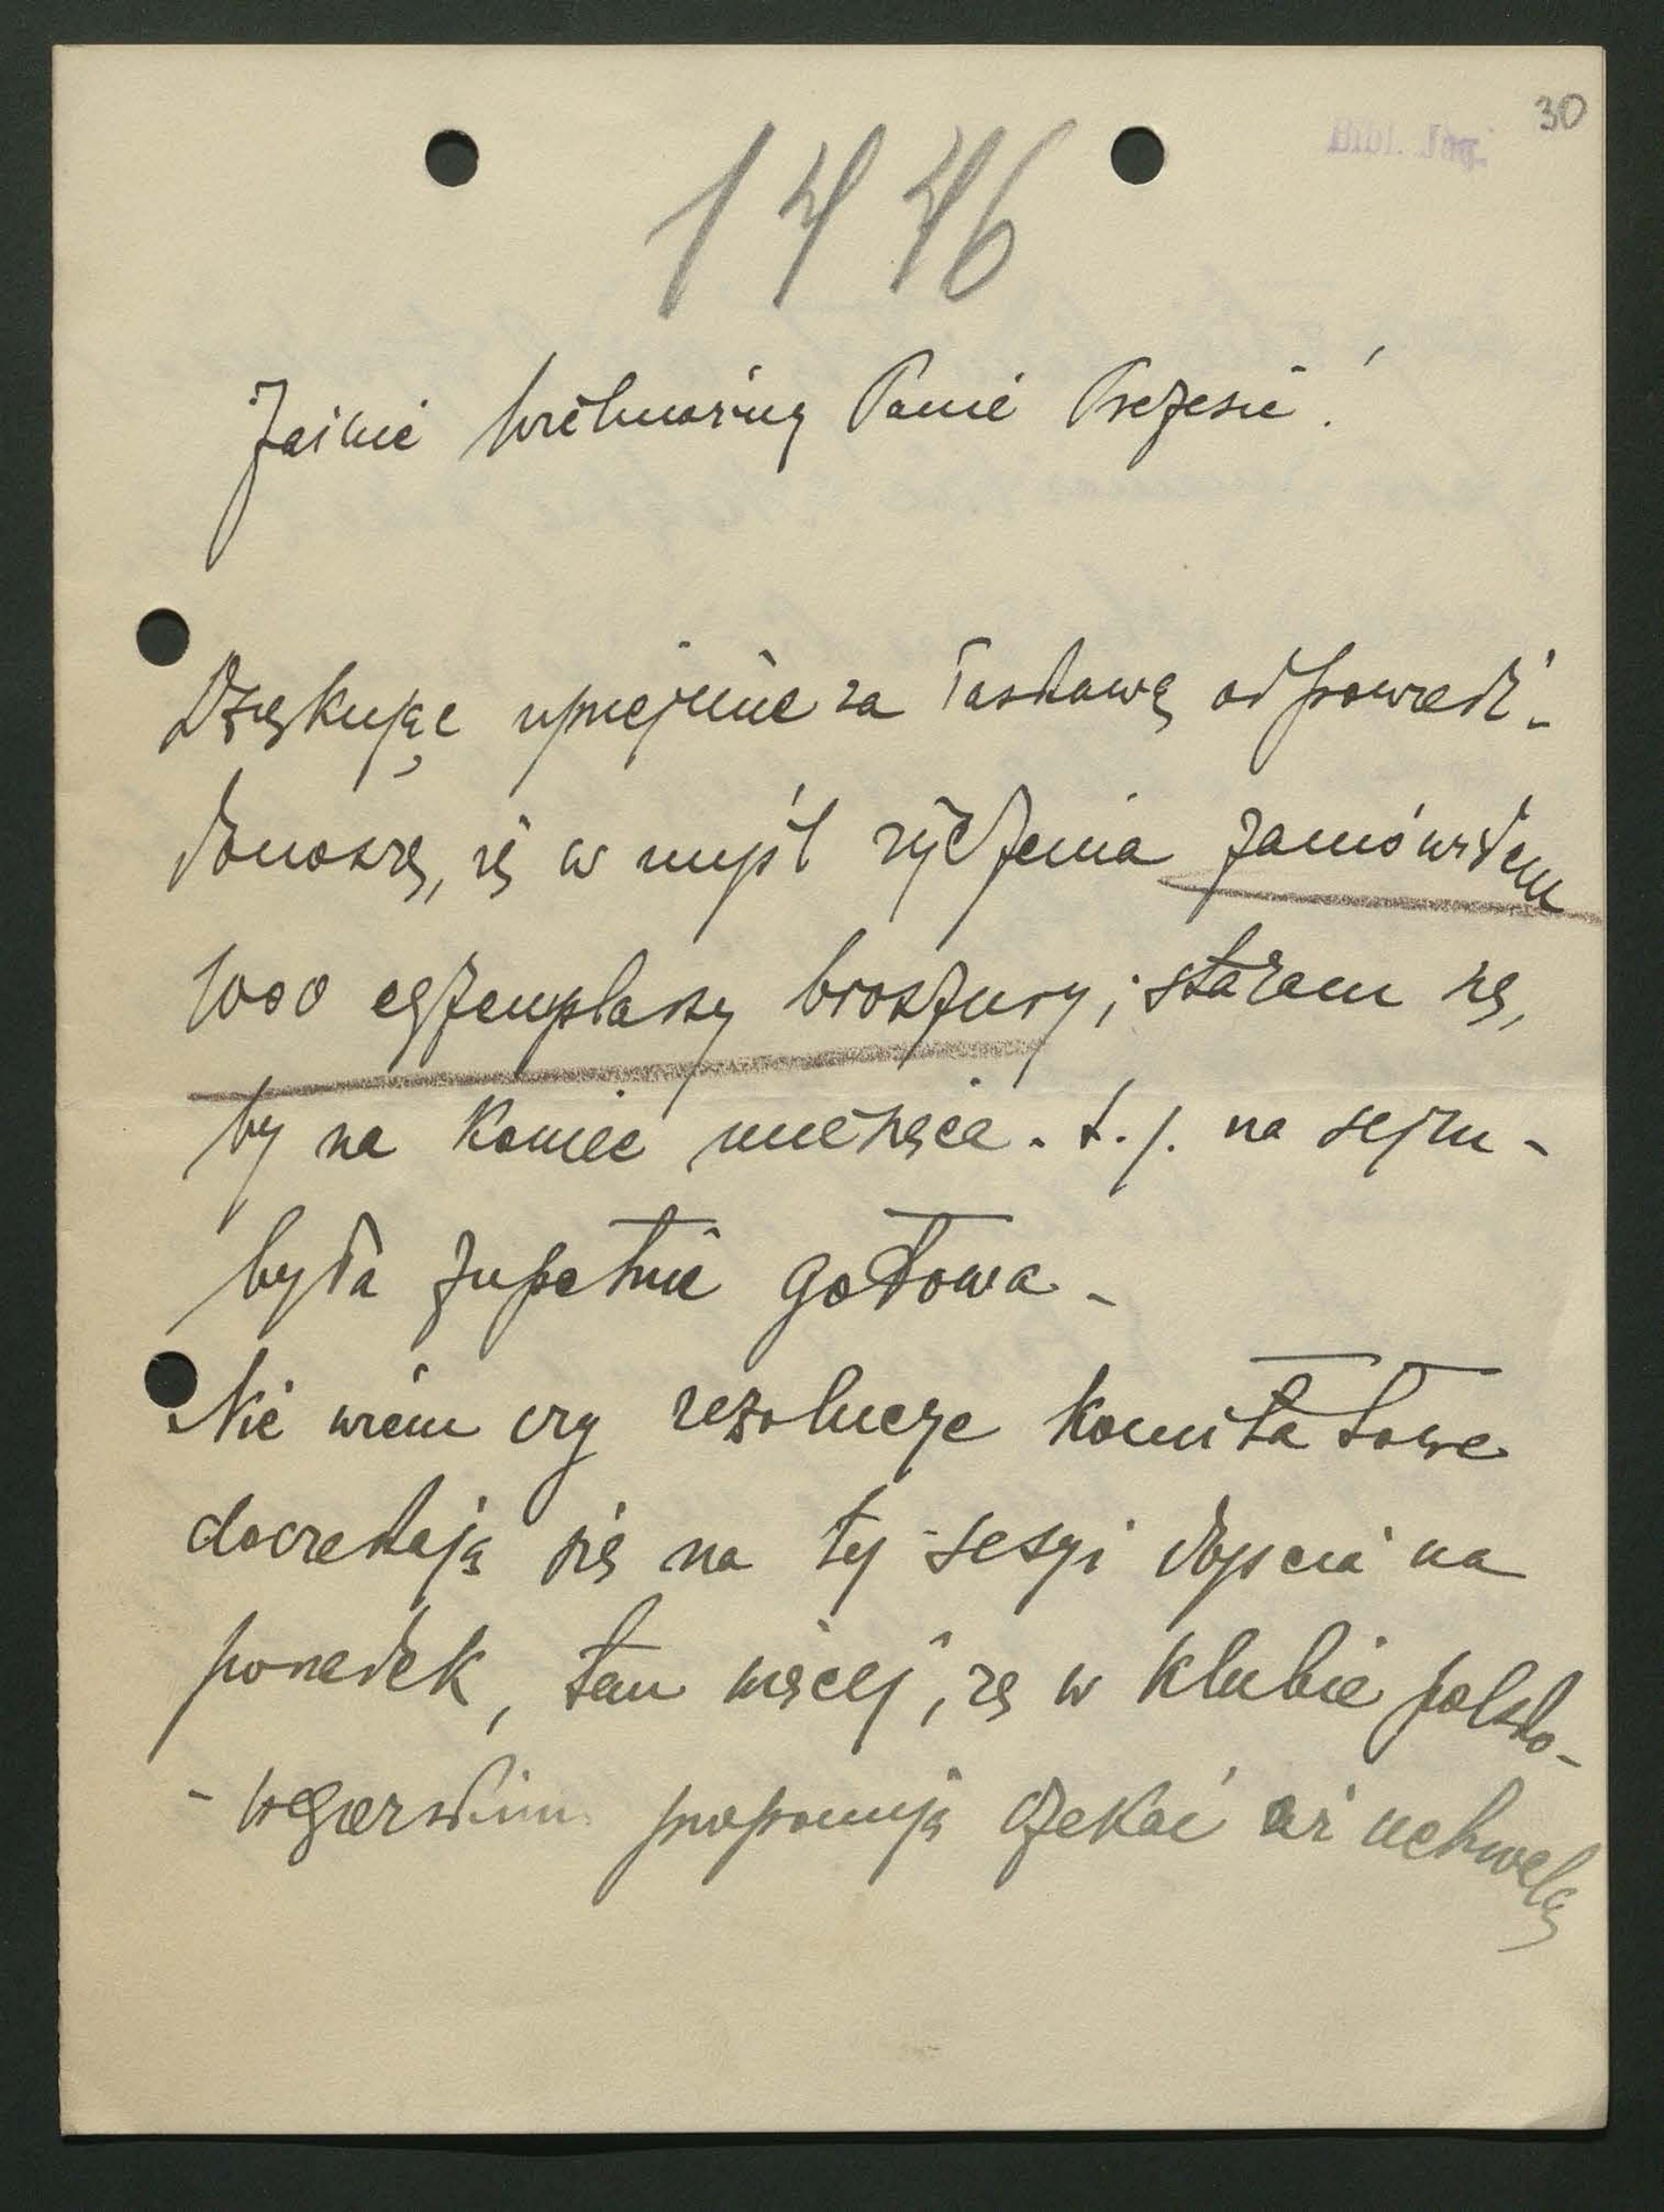 30
Bibl. Jag.
1446
Jaśnie Wielmożny Panie Prezesie!
Dziękując uprzejmie za łaskawą odpowiedź -
donoszę, iż w myśl życzenia zamówiłem
1000 egzemplarzy broszury; staram się,
by na koniec miesiąca - t. j. na sejm -
była zupełnie gotowa -
Nie wiem czy rezolucye komitatowe
doczekają się na tej sesyi dojścia na
porządek, tem więcej, że w klubie polsko-
- węgierskim proponują czekać aż uchwalą